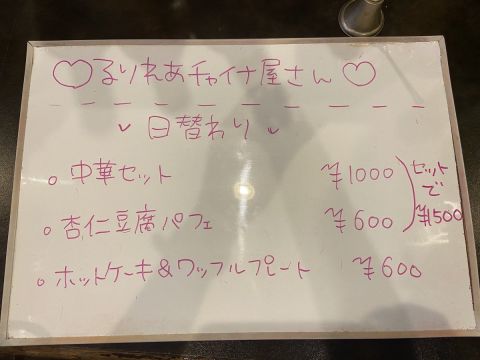 ♡るりれあチャイナ屋さん♡
日替わり
。中華セット ¥1000
。杏仁豆腐パフェ ¥600
セットで¥1500
。ホットケーキ&ワッフルプレート ¥600